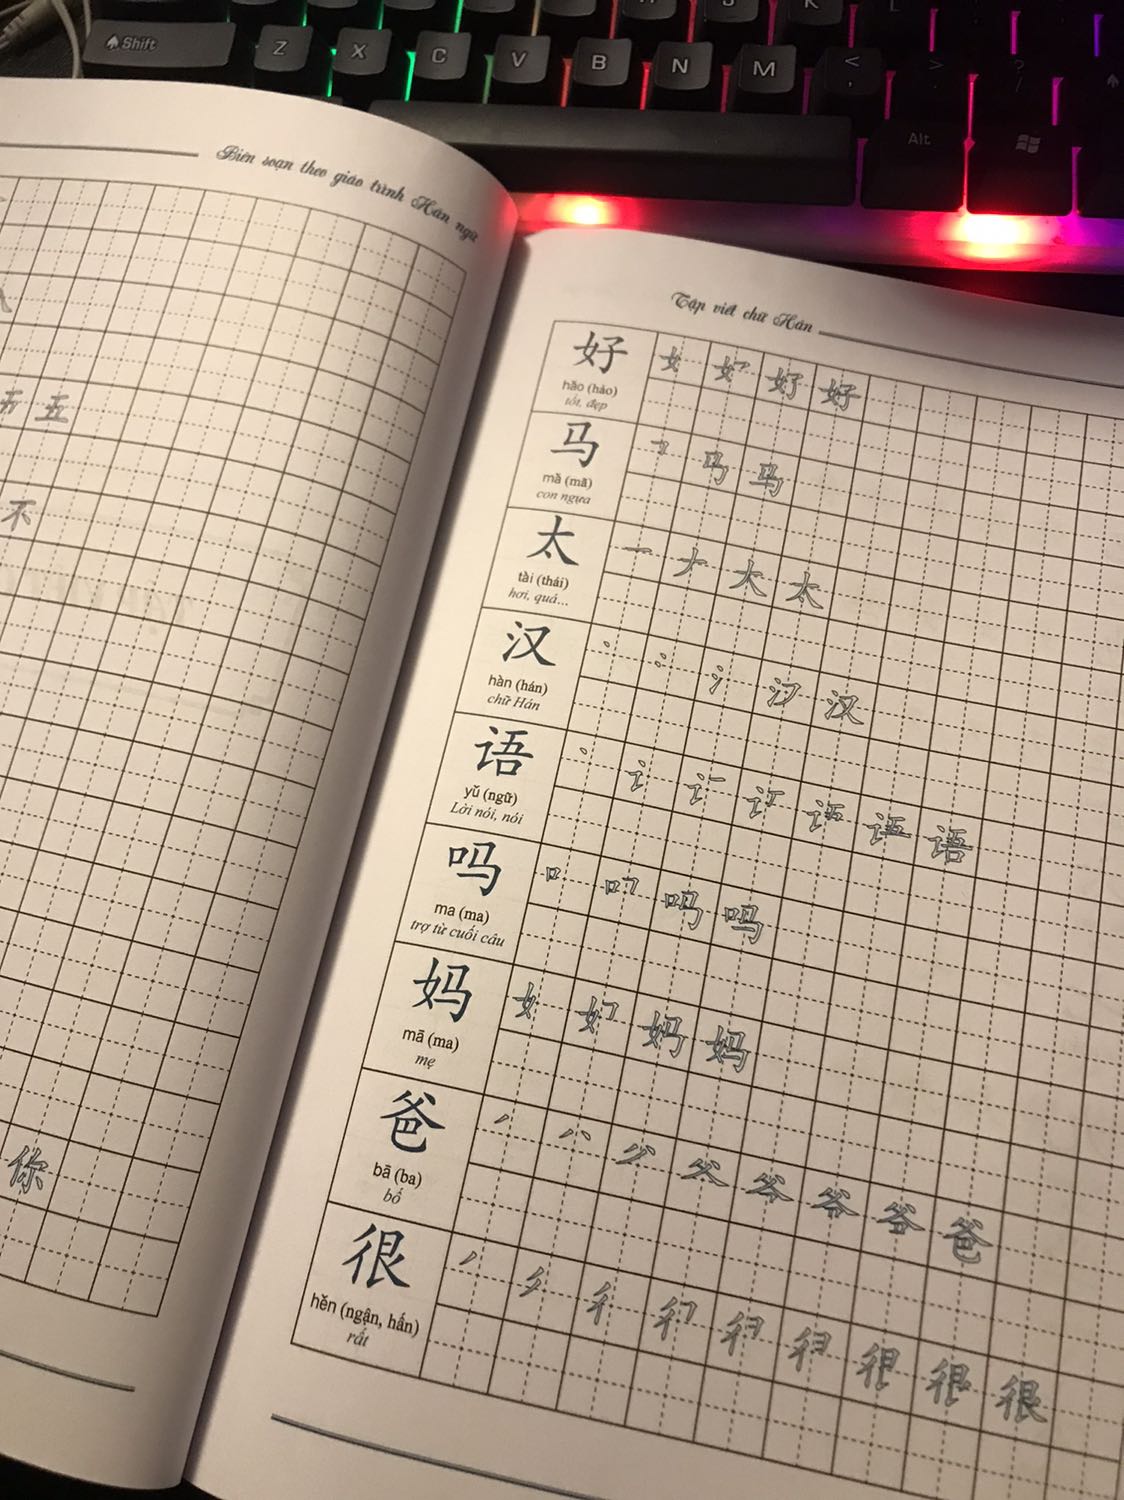 Shift
Z X C V B N M < , > . ? /
Alt
Biên soạn theo giáo trình Hán ngữ
五
不
你
Tập viết chữ Hán
好
hǎo (hảo)
tốt, đẹp
女 好 好
马
mǎ (mã)
con ngựa
马
太
tài (thái)
hơi, quá...
一 ナ 大 太
汉
hàn (hán)
chữ Hán
丶 冫 氵 汉
语
yǔ (ngữ)
Lời nói, nói
丶 讠 语
吗
ma (ma)
trợ từ cuối câu
口 吗 吗
妈
mā (ma)
mẹ
女 妈 妈
爸
bā (ba)
bố
丿 八 父 爸
很
hěn (ngận, hấn)
rất
丿 彳 很